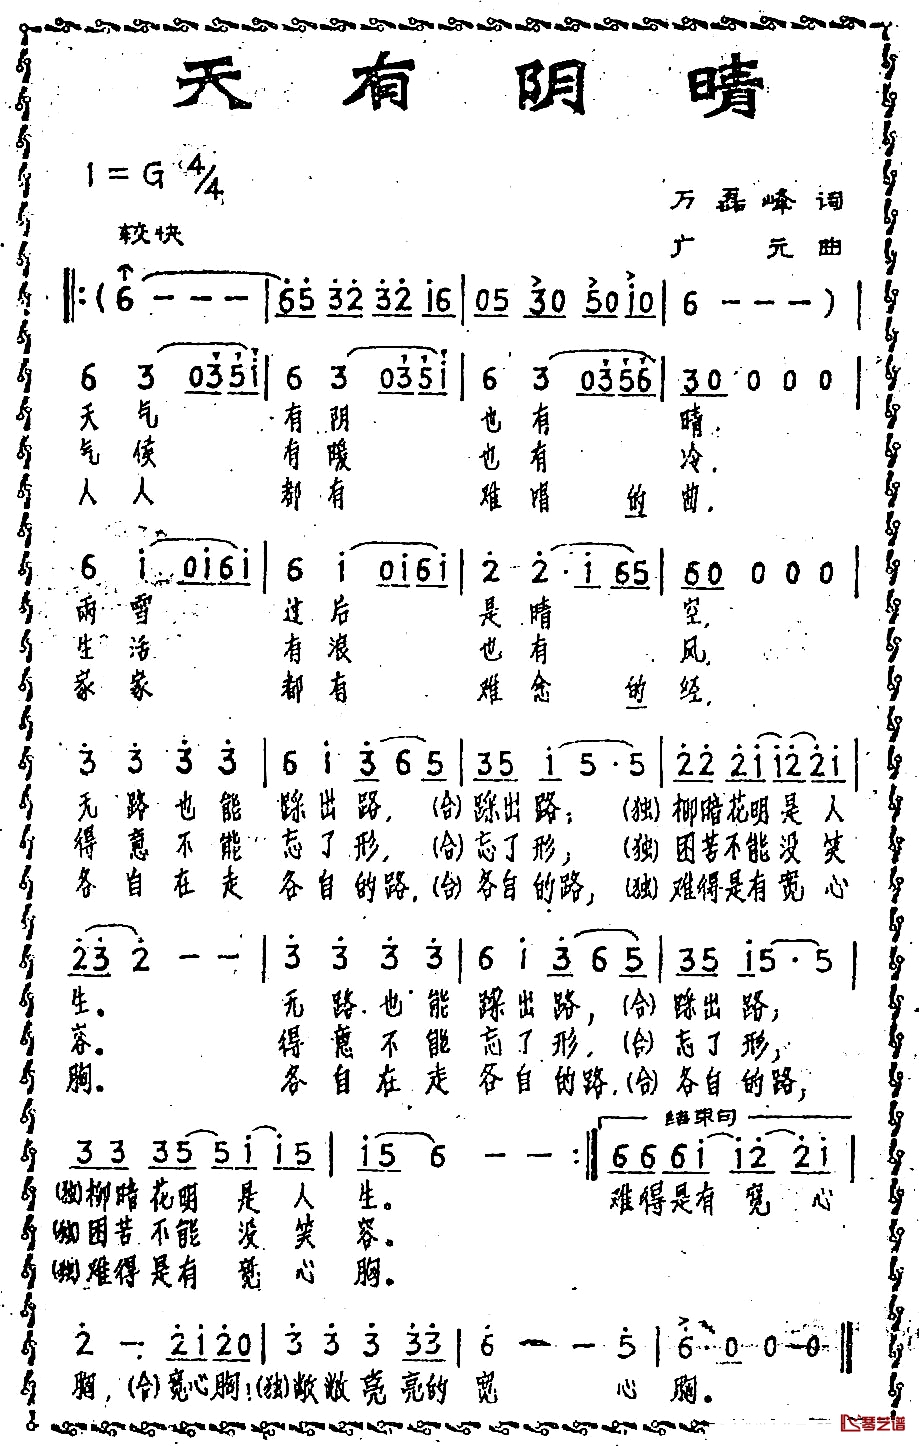 天有阴晴
1=G 4/4
万磊峰 词
较快
广元 曲
‖:(6 - - - | 65 32 32 i6 | 05 30 50 i0 | 6 - - - ) |
6 3 035i | 6 3 035i | 6 3 0356 | 30 0 0 0 |
天气 有阴 也有 晴.
气候 有暖 也有 冷.
人人 都有 难唱 的曲.
6 i 0i6i | 6 i 0i6i | 2 2·i 65 | 60 0 0 0 |
雨雪 过后 是晴 空,
生活 有浪 也有 风,
家家 都有 难念 的经,
3 3 3 3 | 6 i 3 6 5 | 35 i 5·5 | 22 2i i2 2i |
无路也能 踩出路,(合)踩出路;(独)柳暗花明是人
得意不能 忘了形,(合)忘了形;(独)困苦不能没笑
各自在走 各自的路,(合)各自的路,(独)难得是有宽心
23 2 - - | 3 3 3 3 | 6 i 3 6 5 | 35 i5·5 |
生。 无路也能 踩出路,(合)踩出路;
容。 得意不能 忘了形,(合)忘了形;
胸。 各自在走 各自的路.(合)各自的路,
结束句
33 35 5i i5 | i5 6 - - :‖ 66 6i i2 2i |
(独)柳暗花明是人生。 难得是有宽心
(独)困苦不能没笑容。
(独)难得是有宽心胸。
2 - 2i 20 | 3 3 3 33 | 6 - - 5 | 6·0 0 0 ‖
胸,(合)宽心胸!(独)敞敞亮亮的宽心胸。
琴艺谱